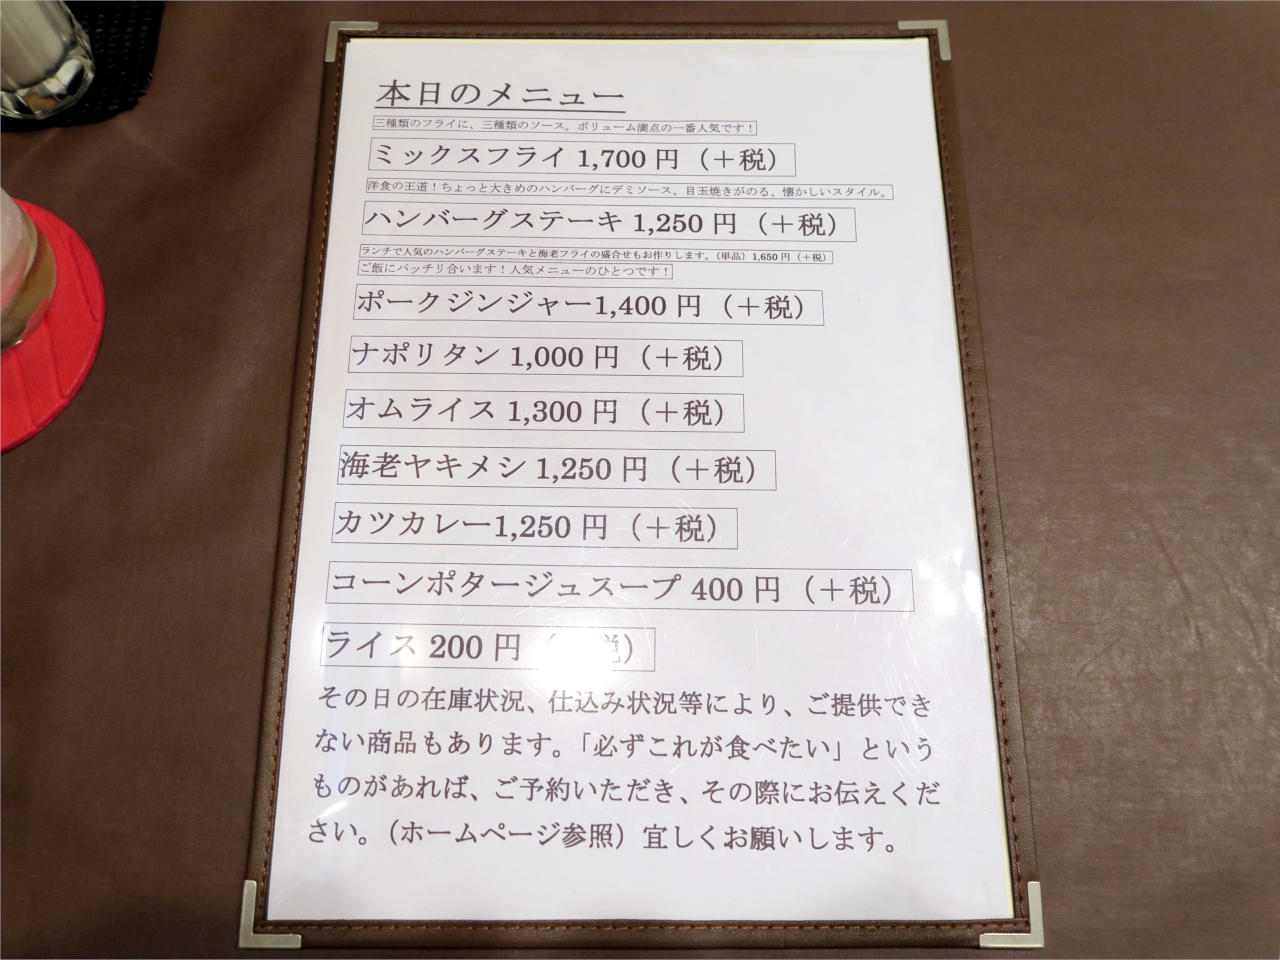 本日のメニュー
三種類のフライに、三種類のソース。ボリューム満点の一番人気です！
ミックスフライ 1,700 円（＋税）
洋食の王道！ちょっと大きめのハンバーグにデミソース、目玉焼きがのる、懐かしいスタイル。
ハンバーグステーキ 1,250 円（＋税）
ランチで人気のハンバーグステーキと海老フライの盛合せもお作りします。（単品）1,650 円（＋税）
ご飯にバッチリ合います！人気メニューのひとつです！
ポークジンジャー1,400 円（＋税）
ナポリタン 1,000 円（＋税）
オムライス 1,300 円（＋税）
海老ヤキメシ 1,250 円（＋税）
カツカレー1,250 円（＋税）
コーンポタージュスープ 400 円（＋税）
ライス 200 円（税）
その日の在庫状況、仕込み状況等により、ご提供でき
ない商品もあります。「必ずこれが食べたい」という
ものがあれば、ご予約いただき、その際にお伝えくだ
さい。（ホームページ参照）宜しくお願いします。